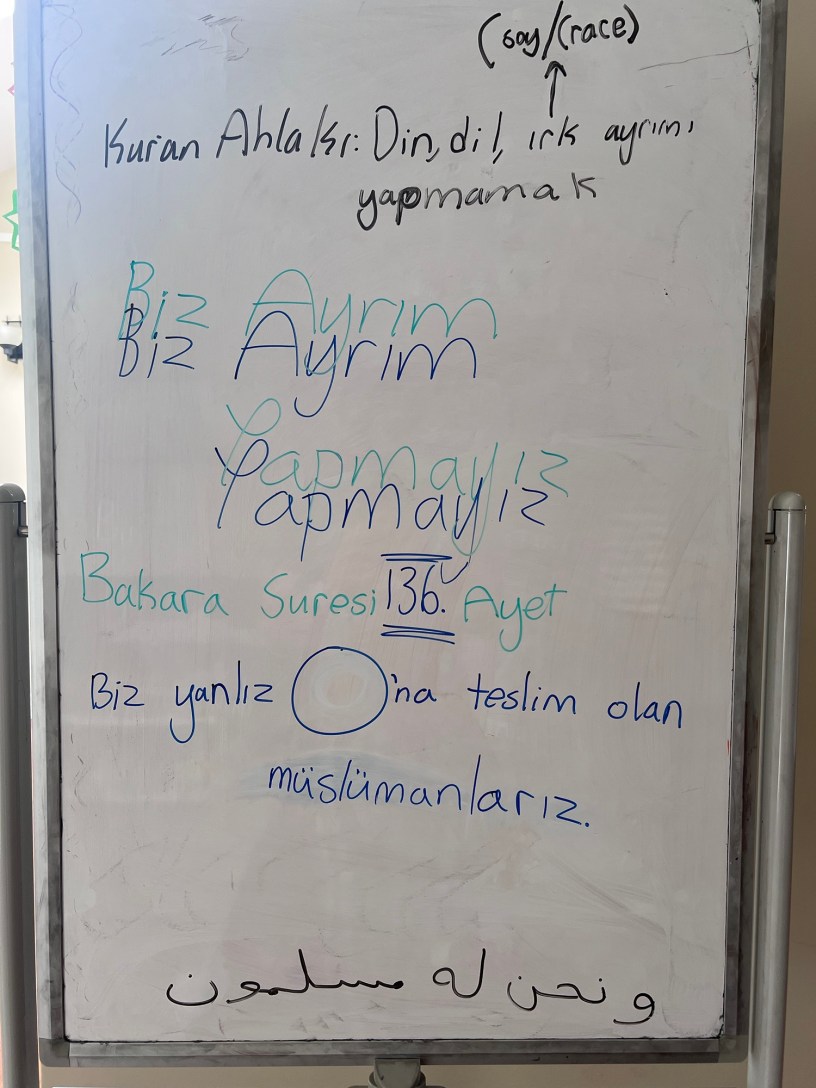 (soy/(race)
Kuran Ahlakı: Din, dil, ırk ayrımı
yapmamak
Biz Ayrım
Biz Ayrım
Yapmayız
Yapmayız
Bakara Suresi 136. Ayet
Biz yanlız 'na teslim olan
müslümanlarız.
و نحن له مسلمون